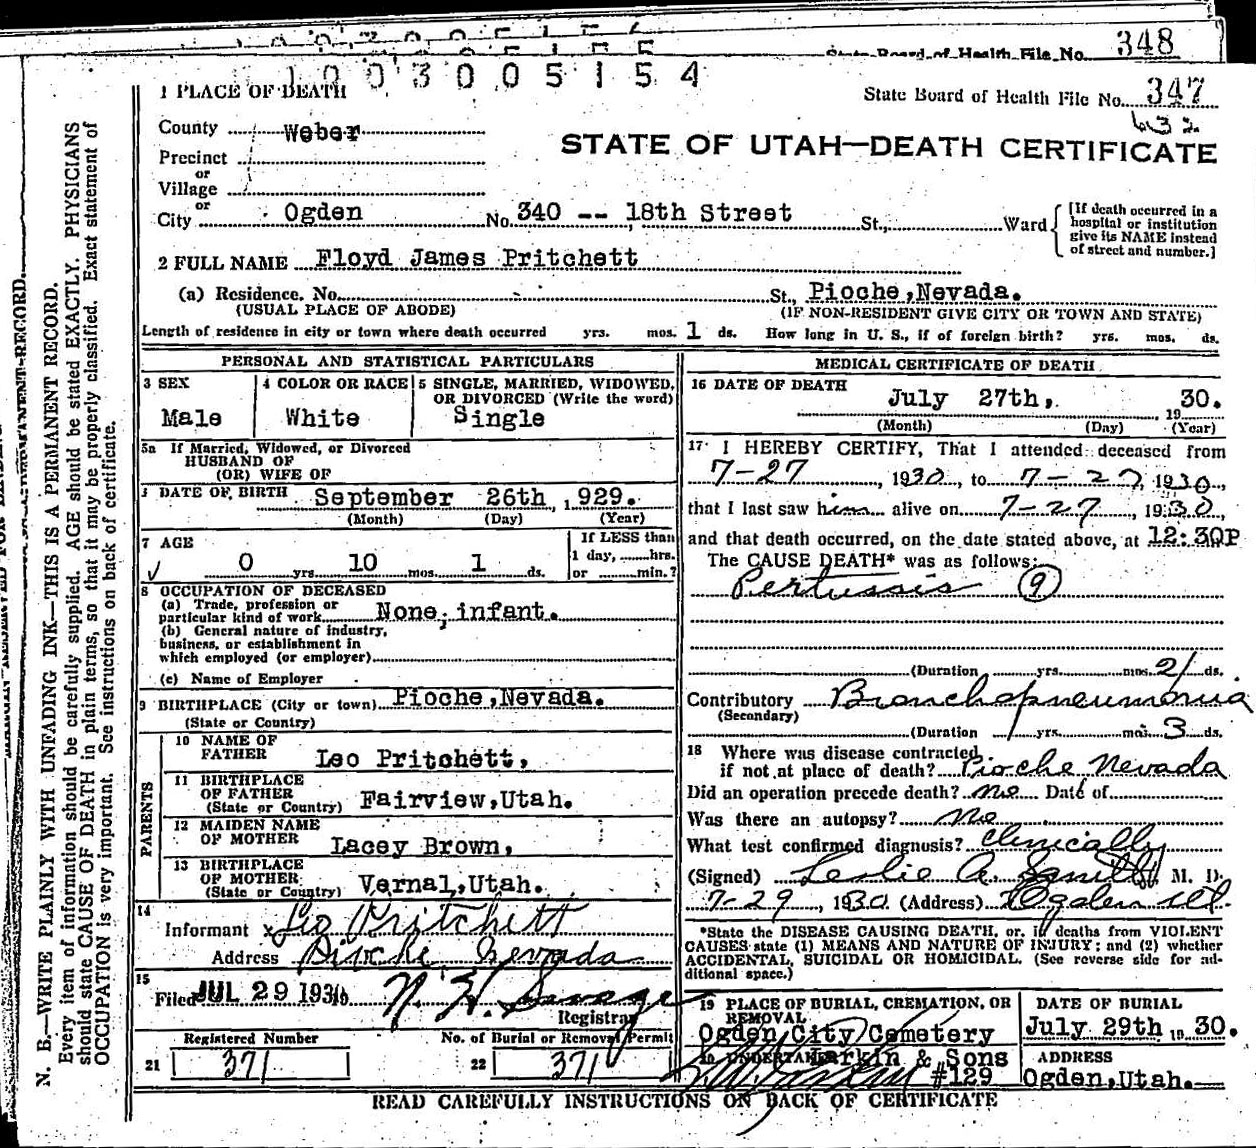 State Board of Health File No. 348
1003005154
1 PLACE OF DEATH
State Board of Health File No. 347
632
County Weber
STATE OF UTAH—DEATH CERTIFICATE
Precinct
or
Village
or
City Ogden No. 340 -- 18th Street St., Ward
[If death occurred in a hospital or institution give its NAME instead of street and number.]
2 FULL NAME Floyd James Pritchett
(a) Residence. No. St., Pioche, Nevada.
(USUAL PLACE OF ABODE) (IF NON-RESIDENT GIVE CITY OR TOWN AND STATE)
Length of residence in city or town where death occurred yrs. mos. 1 ds. How long in U. S., if of foreign birth? yrs. mos. ds.
PERSONAL AND STATISTICAL PARTICULARS
3 SEX
Male
4 COLOR OR RACE
White
5 SINGLE, MARRIED, WIDOWED, OR DIVORCED (Write the word)
Single
5a If Married, Widowed, or Divorced
HUSBAND OF
(OR) WIFE OF
DATE OF BIRTH September 26th, 1929.
(Month) (Day) (Year)
7 AGE
0 yrs 10 mos. 1 ds.
If LESS than
1 day, hrs.
or min.?
8 OCCUPATION OF DECEASED
(a) Trade, profession or
particular kind of work None, infant.
(b) General nature of industry,
business, or establishment in
which employed (or employer)
(c) Name of Employer
9 BIRTHPLACE (City or town) Pioche, Nevada.
(State or Country)
PARENTS
10 NAME OF
FATHER Leo Pritchett,
11 BIRTHPLACE
OF FATHER
(State or Country) Fairview, Utah.
12 MAIDEN NAME
OF MOTHER Lacey Brown,
13 BIRTHPLACE
OF MOTHER
(State or Country) Vernal, Utah.
14
Informant x Leo Pritchett
Address Pioche Nevada
15
Filed JUL 29 1930 N. H. Savage
Registrar
Registered Number No. of Burial or Removal Permit
21 371 22 371
MEDICAL CERTIFICATE OF DEATH
16 DATE OF DEATH
July 27th, 1930.
(Month) (Day) (Year)
17 I HEREBY CERTIFY, That I attended deceased from
7-27, 1930, to 7-27, 1930,
that I last saw him alive on 7-27, 1930,
and that death occurred, on the date stated above, at 12:30P
The CAUSE DEATH* was as follows:
Pertussis (9)
(Duration yrs. mos. 21 ds.
Contributory Bronchopneumonia
(Secondary)
(Duration yrs. mos. 3 ds.
18 Where was disease contracted
if not at place of death? Pioche, Nevada
Did an operation precede death? no Date of
Was there an autopsy? no
What test confirmed diagnosis? clinically
(Signed) Leslie A. Smith M. D.
7-29, 1930 (Address) Ogden
*State the DISEASE CAUSING DEATH, or, if deaths from VIOLENT
CAUSES state (1) MEANS AND NATURE OF INJURY; and (2) whether
ACCIDENTAL, SUICIDAL OR HOMICIDAL. (See reverse side for ad-
ditional space.)
19 PLACE OF BURIAL, CREMATION, OR
REMOVAL
Ogden City Cemetery
DATE OF BURIAL
July 29th 1930.
20 UNDERTAKER Larkin & Sons
#129
ADDRESS
Ogden, Utah.
READ CAREFULLY INSTRUCTIONS ON BACK OF CERTIFICATE
N. B.—WRITE PLAINLY WITH UNFADING INK—THIS IS A PERMANENT RECORD.
Every item of information should be carefully supplied. AGE should be stated EXACTLY. PHYSICIANS
should state CAUSE OF DEATH in plain terms, so that it may be properly classified. Exact statement of
OCCUPATION is very important. See instructions on back of certificate.